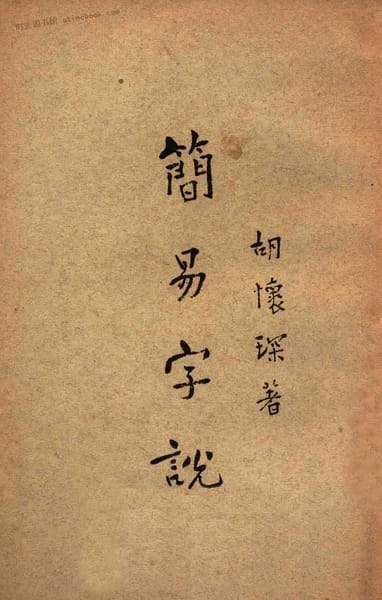 时光图书馆 atimebook.com
胡懷琛著
簡易字說